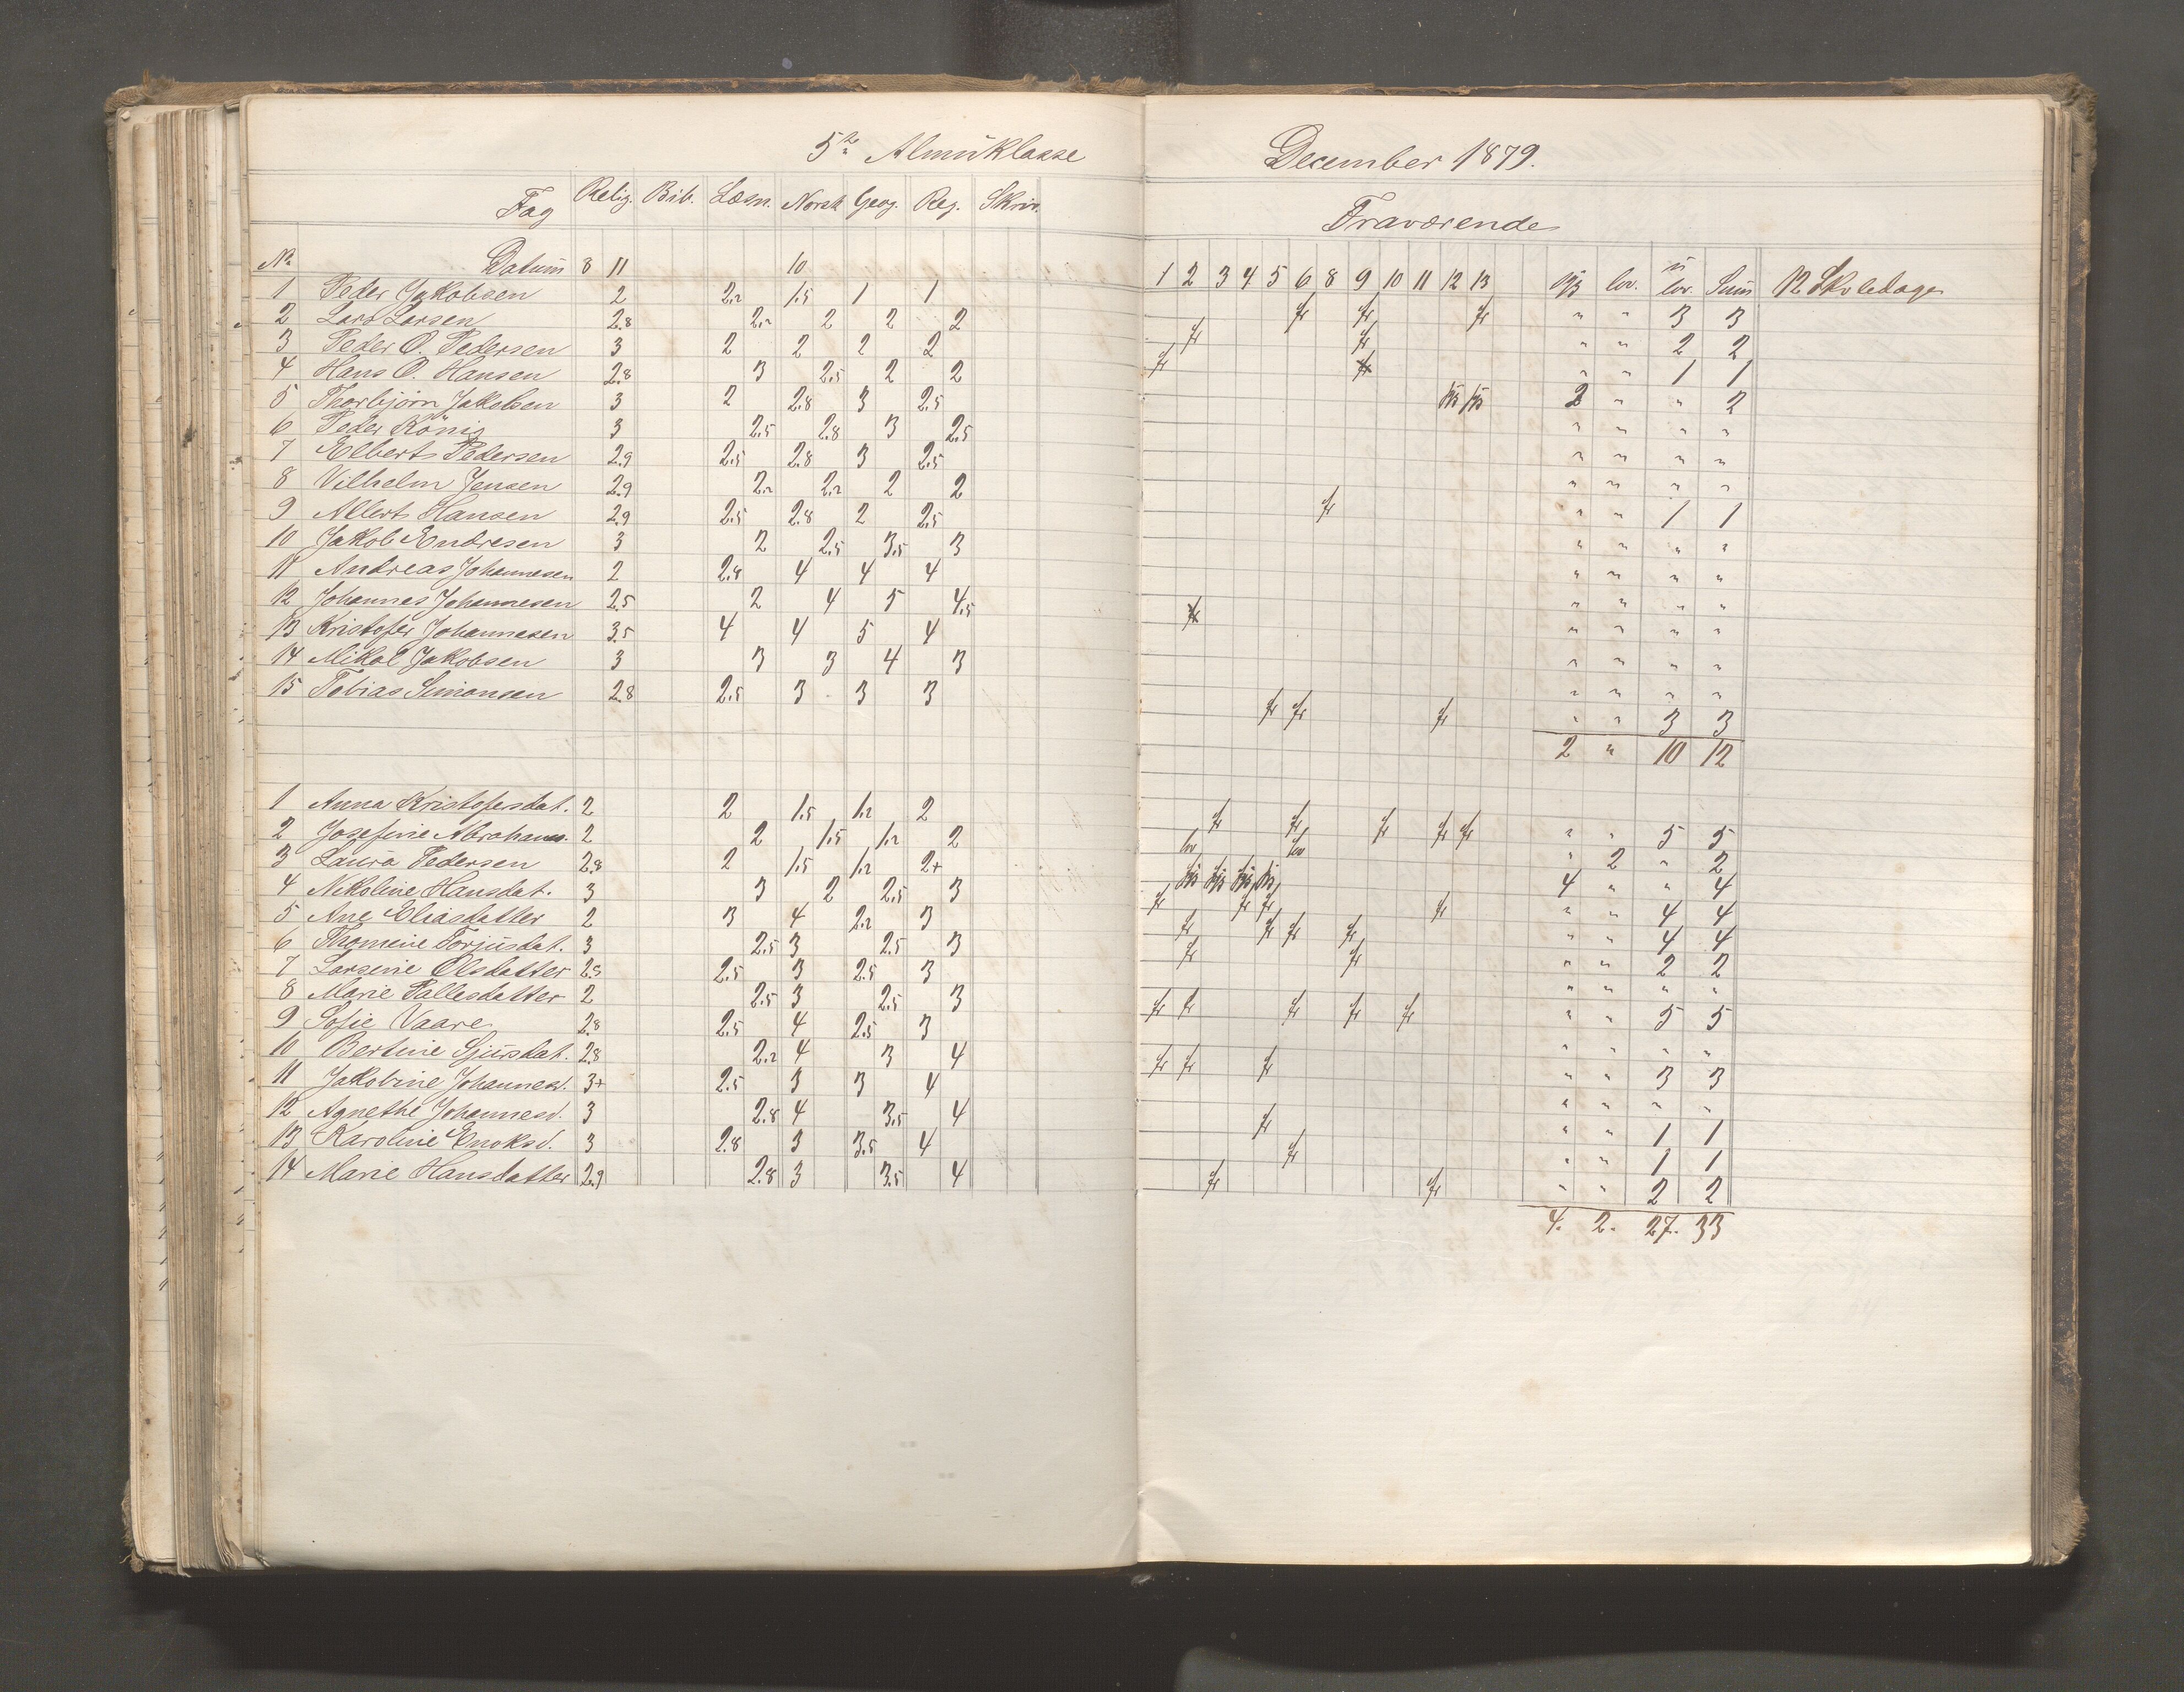 5te Almueklasse
Fag Relig. Bib. Læsn. Norsk Geog. Reg. Skriv.
No Datum 8 11 10
1 Peder Jakobsen 2 2.2 1.5 1 1
2 Lars Larsen 2.8 2.2 2 2 2
3 Peder O. Pedersen 3 2 2 2 2
4 Hans O. Hansen 2.8 3 2.5 2 2
5 Thorbjørn Jakobsen 3 2 2.8 3 2.5
6 Peder König 3 2.5 2.8 3 2.5
7 Elbert Pedersen 2.9 2.5 2.8 3 2.5
8 Vilhelm Jensen 2.9 2.2 2.2 2 2
9 Albert Hansen 2.9 2.5 2.8 2 2.5
10 Jakob Endresen 3 2 2.5 3.5 3
11 Andreas Johannesen 2 2.8 4 4 4
12 Johannes Johannesen 2.5 2 4 5 4.5
13 Kristofer Johannesen 3.5 4 4 5 4
14 Mikal Jakobsen 3 3 3 4 3
15 Tobias Simonsen 2.8 2.5 3 3 3
1 Anna Kristofersdat. 2 2 1.5 1.2 2
2 Josefine Abrahams. 2 2 1.5 1.2 2
3 Laura Pedersen 2.8 2 1.5 1.2 2+
4 Nikoline Hansdat. 3 3 2 2.5 3
5 Ane Eliasdatter 2 3 4 2.2 3
6 Thomine Torjusdat. 3 2.5 3 2.5 3
7 Larsine Olsdatter 2.5 2.5 3 2.5 3
8 Marie Pallesdatter 2 2.5 3 2.5 3
9 Sofie Vaare 2.8 2.5 4 2.5 3
10 Bertine Sjursdat. 2.8 2.2 4 3 4
11 Jakobine Johannesd. 3+ 2.5 3 3 4
12 Agnethe Johannesd. 3 2.8 4 3.5 4
13 Karoline Enoksd. 3 2.8 3 3.5 4
14 Marie Hansdatter 2.9 2.8 3 3.5 4
December 1879.
Fraværende
1 2 3 4 5 6 8 9 10 11 12 13 lov. u lov. Sum 12 Skoledage
fr fr fr " " 3 3
fr fr " " 2 2
fr fr " " 1 1
2 " " 2
" " " "
" " " "
" " " "
fr " " 1 1
" " " "
" " " "
" " " "
fr " " " "
" " " "
" " " "
fr fr fr " " 3 3
2 " 10 12
fr fr fr fr fr " " 5 5
lov lov " 2 " 2
4 " " 4
fr fr fr fr " " 4 4
fr fr fr fr " " 4 4
fr fr " " 2 2
" " " "
fr fr fr fr fr " " 5 5
" " " "
fr fr fr " " 3 3
" " " "
fr " " 1 1
fr " " 1 1
fr fr " " 2 2
4. 2. 27. 33